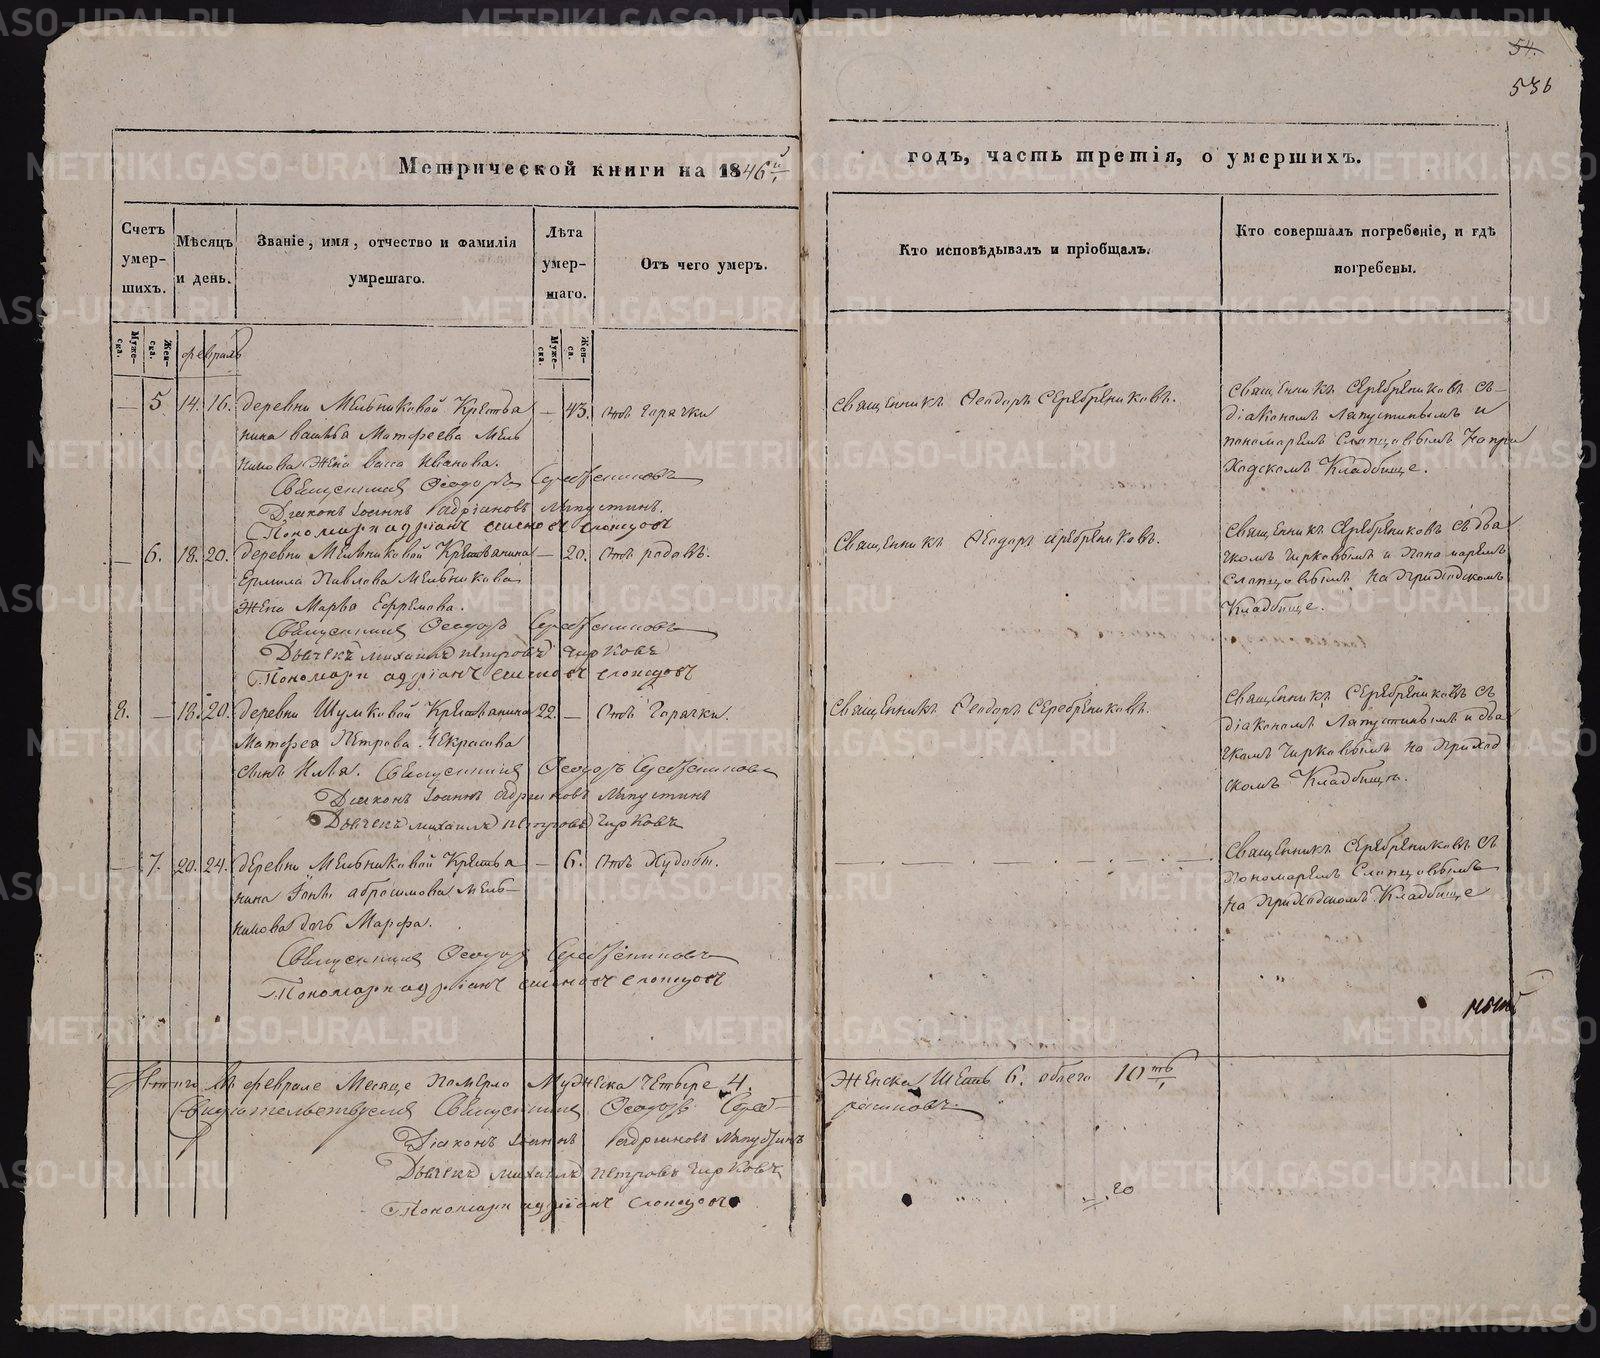 54.
536
Метрической книги на 1846й
годъ, часть третія, о умершихъ.
Счетъ умер-шихъ.
Мѣсяцъ и день.
Званіе, имя, отчество и фамилія умрешаго.
Лѣта умер-шаго.
Отъ чего умеръ.
Кто исповѣдывалъ и пріобщалъ.
Кто совершалъ погребеніе, и гдѣ погребены.
Муже-ска.
Жен-ска.
февраль
Муже-ска.
Жен-с.
— 5. 14. 16. деревни Мельниковой Крестья — 43. отъ горячки
нина Матфеева Мель
никова жена Васса Иванова.
Священникъ Феодоръ Серебрениковъ
Діаконъ Іоаннъ Адріановъ Ляпустинъ.
Пономарь Адріанъ Слопцовъ
Священникъ Феодоръ Серебрениковъ.
Священникъ Серебрениковъ съ
діакономъ Ляпустинымъ и
пономаремъ Слопцовымъ на при
ходскомъ кладбище.
— 6. 18. 20. деревни Мельниковой Крестьянина — 20. отъ родовъ.
Ермила Павлова Мельникова
жена Марья Ефремова.
Священникъ Феодоръ Серебрениковъ
Дьячекъ Михаилъ Петровъ Чирковъ
Пономарь Адріанъ Слопцовъ
Священникъ Феодоръ Серебрениковъ.
Священникъ Серебрениковъ съ дья
чкомъ Чирковымъ и пономаремъ
Слопцовымъ на приходскомъ
кладбище.
8. — 18. 20. деревни Шумковой Крестьянина 22. — отъ горячки.
Матфея Петрова Некрасова
сынъ Илья. Священникъ Феодоръ Серебрениковъ
Діаконъ Іоаннъ Адріановъ Ляпустинъ
Дьячекъ Михаилъ Петровъ Чирковъ
Священникъ Феодоръ Серебрениковъ.
Священникъ Серебрениковъ съ
діакономъ Ляпустинымъ и дья
чкомъ Чирковымъ на приход
скомъ кладбище.
— 7. 20. 24. деревни Мельниковой Крестья — 6. отъ худобы.
нина Мель-
никова дочь Марфа.
Священникъ Феодоръ Серебрениковъ
Пономарь Адріанъ Слопцовъ
Священникъ Серебрениковъ съ
пономаремъ Слопцовымъ
на приходскомъ кладбище
Итого въ феврале месяце померло мужеска четыре 4.
женска шесть 6. обоего 10ть
Свидетельствуемъ Священникъ Феодоръ Сереб-
рениковъ
Діаконъ Іоаннъ Адріановъ Ляпустинъ
Дьячекъ Михаилъ Петровъ Чирковъ
Пономарь Адріанъ Слопцовъ
20
METRIKI.GASO-URAL.RU